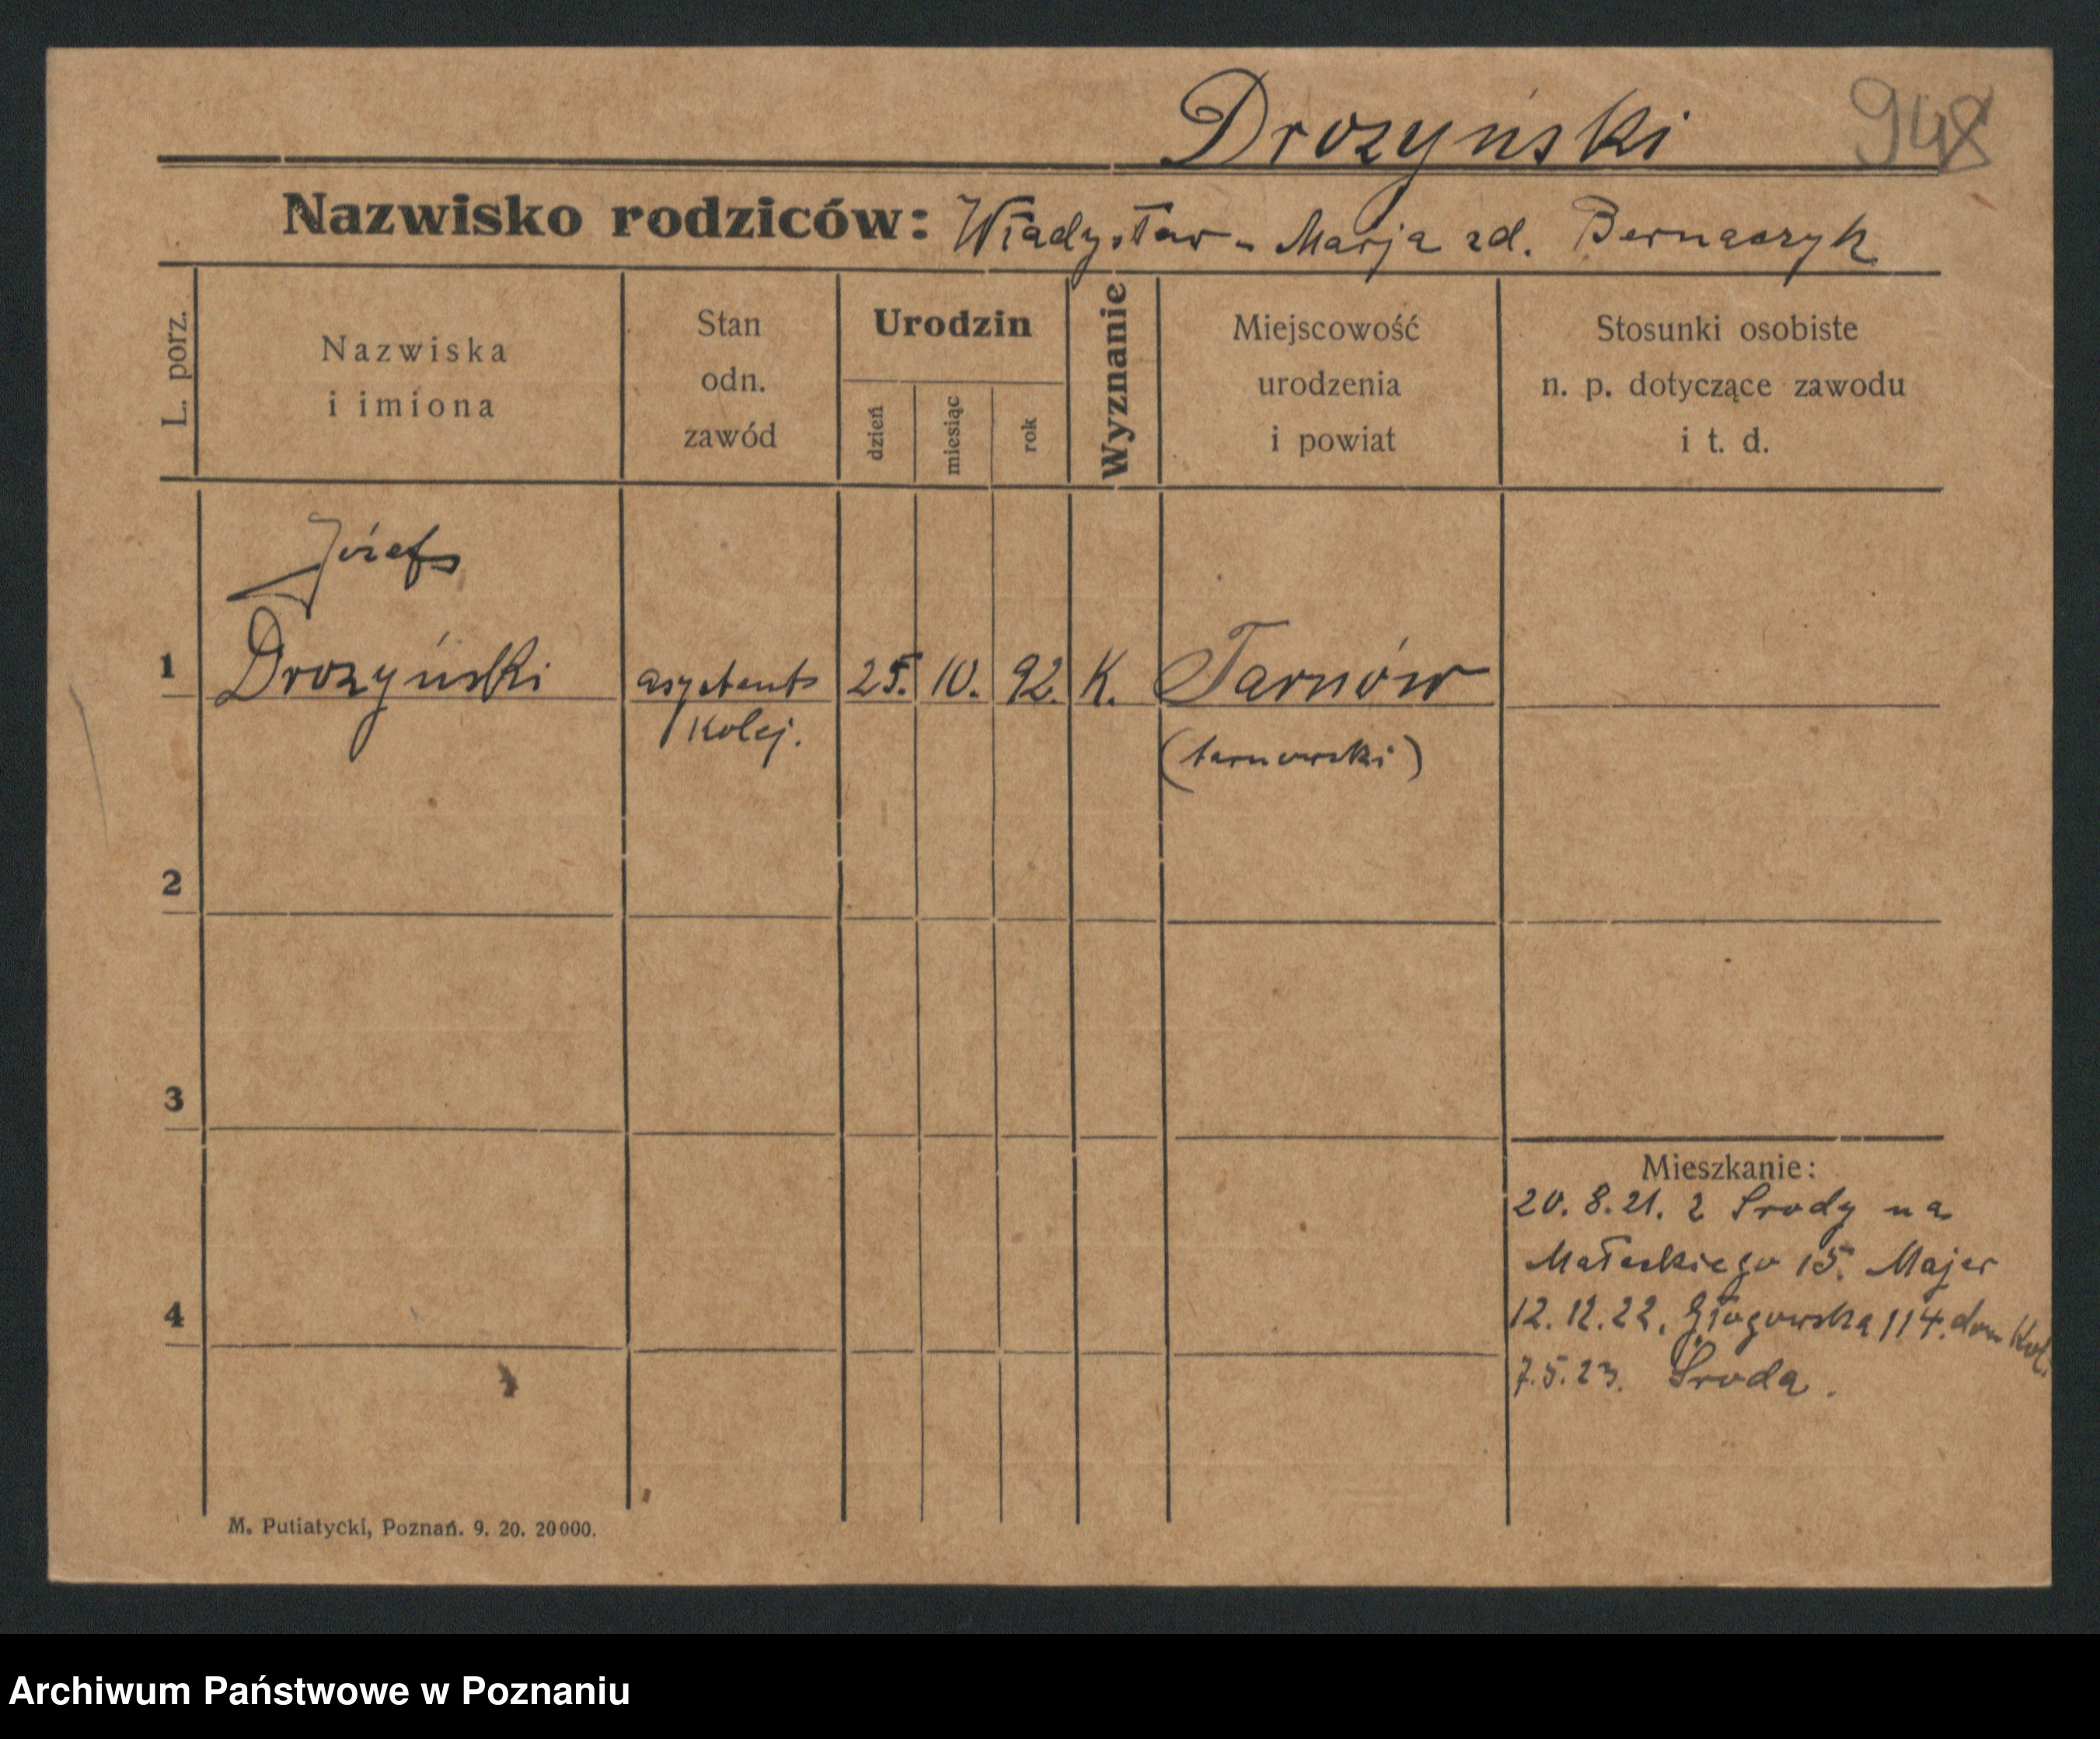 Drozyński 948
Nazwisko rodziców: Władysław - Marja zd. Bernaczyk
L. porz.
Nazwiska
i imiona
Stan
odn.
zawód
Urodzin
dzień
miesiąc
rok
Wyznanie
Miejscowość
urodzenia
i powiat
Stosunki osobiste
n. p. dotyczące zawodu
i t. d.
Józef
1 Drozyński asystent 25. 10. 92. K. Tarnów
Kolej. (tarnowski)
2
3
Mieszkanie:
20. 8. 21. z Środy na
Małeckiego 15. Majer
4 12. 12. 22. Głogowska 114. dom Kol.
7. 5. 23. Środa.
M. Putiatycki, Poznań. 9. 20. 20000.
Archiwum Państwowe w Poznaniu